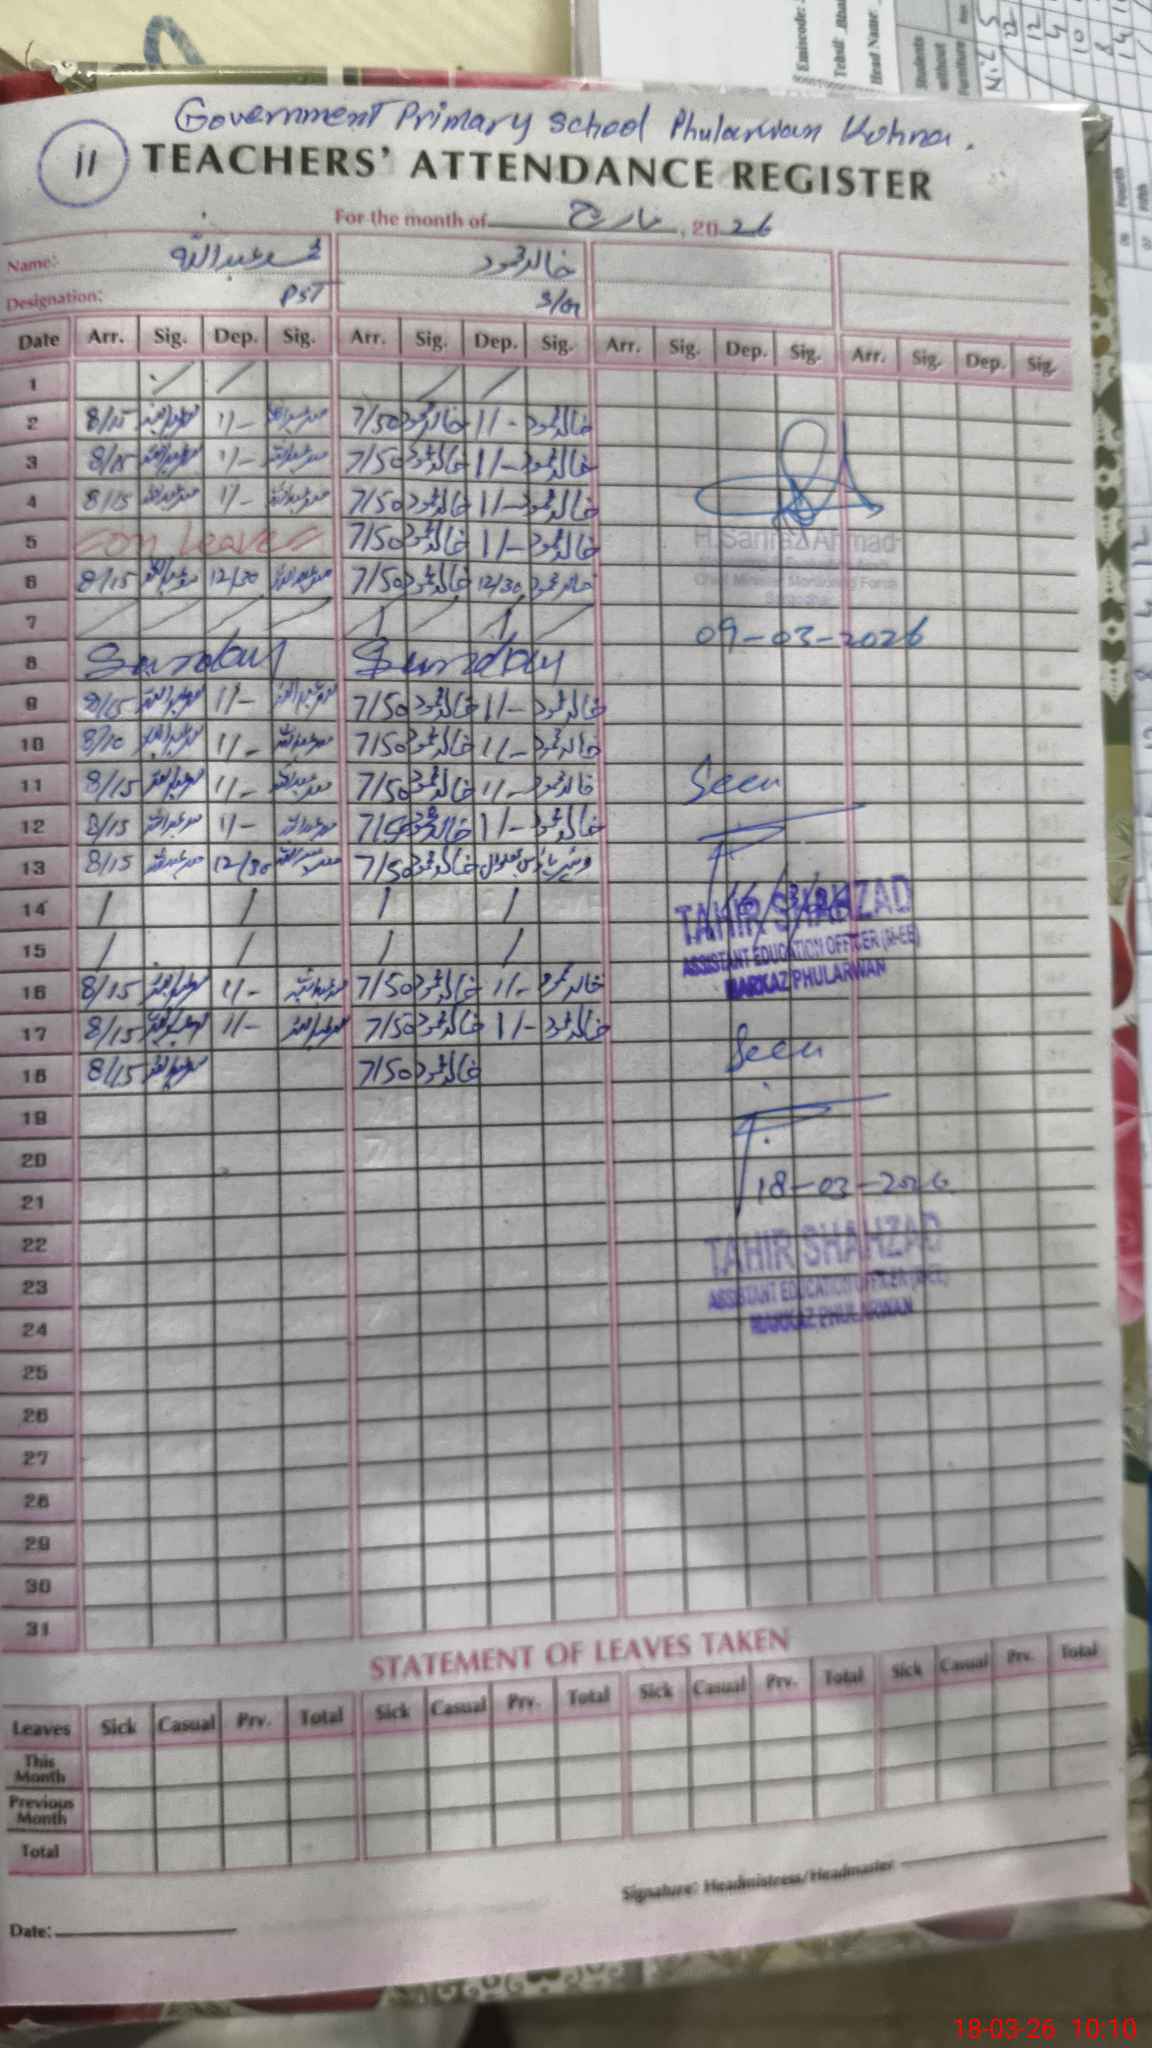 Government Primary School Phularwan Kohna.
11 TEACHERS' ATTENDANCE REGISTER
For the month of مارچ, 2026
Name: محمد عبداللہ خالد محمود
Designation: PST S/on
Date Arr. Sig. Dep. Sig. Arr. Sig. Dep. Sig. Arr. Sig. Dep. Sig. Arr. Sig. Dep. Sig.
1 / / / /
2 8/15 محمد عبداللہ 1/- محمد عبداللہ 7/50 خالد محمود 1/- خالد محمود
3 8/15 محمد عبداللہ 1/- محمد عبداللہ 7/50 خالد محمود 1/- خالد محمود
4 8/15 محمد عبداللہ 1/- محمد عبداللہ 7/50 خالد محمود 1/- خالد محمود
5 on Leave 7/50 خالد محمود 1/- خالد محمود
H.Sarfraz Ahmad
6 8/15 محمد عبداللہ 12/30 محمد عبداللہ 7/50 خالد محمود 12/30 خالد محمود
Chief Minister Monitoring Force
7 / / / / / / / /
09-03-2026
8 Sunday Sunday
9 8/15 محمد عبداللہ 1/- محمد عبداللہ 7/50 خالد محمود 1/- خالد محمود
10 8/10 محمد عبداللہ 1/- محمد عبداللہ 7/50 خالد محمود 1/- خالد محمود
11 8/15 محمد عبداللہ 1/- محمد عبداللہ 7/50 خالد محمود 1/- خالد محمود
Seen
12 8/15 محمد عبداللہ 1/- محمد عبداللہ 7/50 خالد محمود 1/- خالد محمود
13 8/15 محمد عبداللہ 12/30 محمد عبداللہ 7/50 خالد محمود
14 / / / /
TAHIR SHAHZAD
15 / / / /
ASSISTANT EDUCATION OFFICER (M-EE)
MARKAZ PHULARWAN
16 8/15 محمد عبداللہ 1/- محمد عبداللہ 7/50 خالد محمود 1/- خالد محمود
17 8/15 محمد عبداللہ 1/- محمد عبداللہ 7/50 خالد محمود 1/- خالد محمود
Seen
18 8/15 محمد عبداللہ 7/50 خالد محمود
19
20
18-03-2026
21
22
TAHIR SHAHZAD
23
ASSISTANT EDUCATION OFFICER (M-EE)
MARKAZ PHULARWAN
24
25
26
27
28
29
30
31
STATEMENT OF LEAVES TAKEN
Leaves Sick Casual Prv. Total Sick Casual Prv. Total Sick Casual Prv. Total Sick Casual Prv. Total
This Month
Previous Month
Total
Signature: Headmistress/Headmaster
Date:
Emiscode:
Tehsil:
Head Name:
Students without Furniture
Fourth
Fifth
18-03-26 10:10